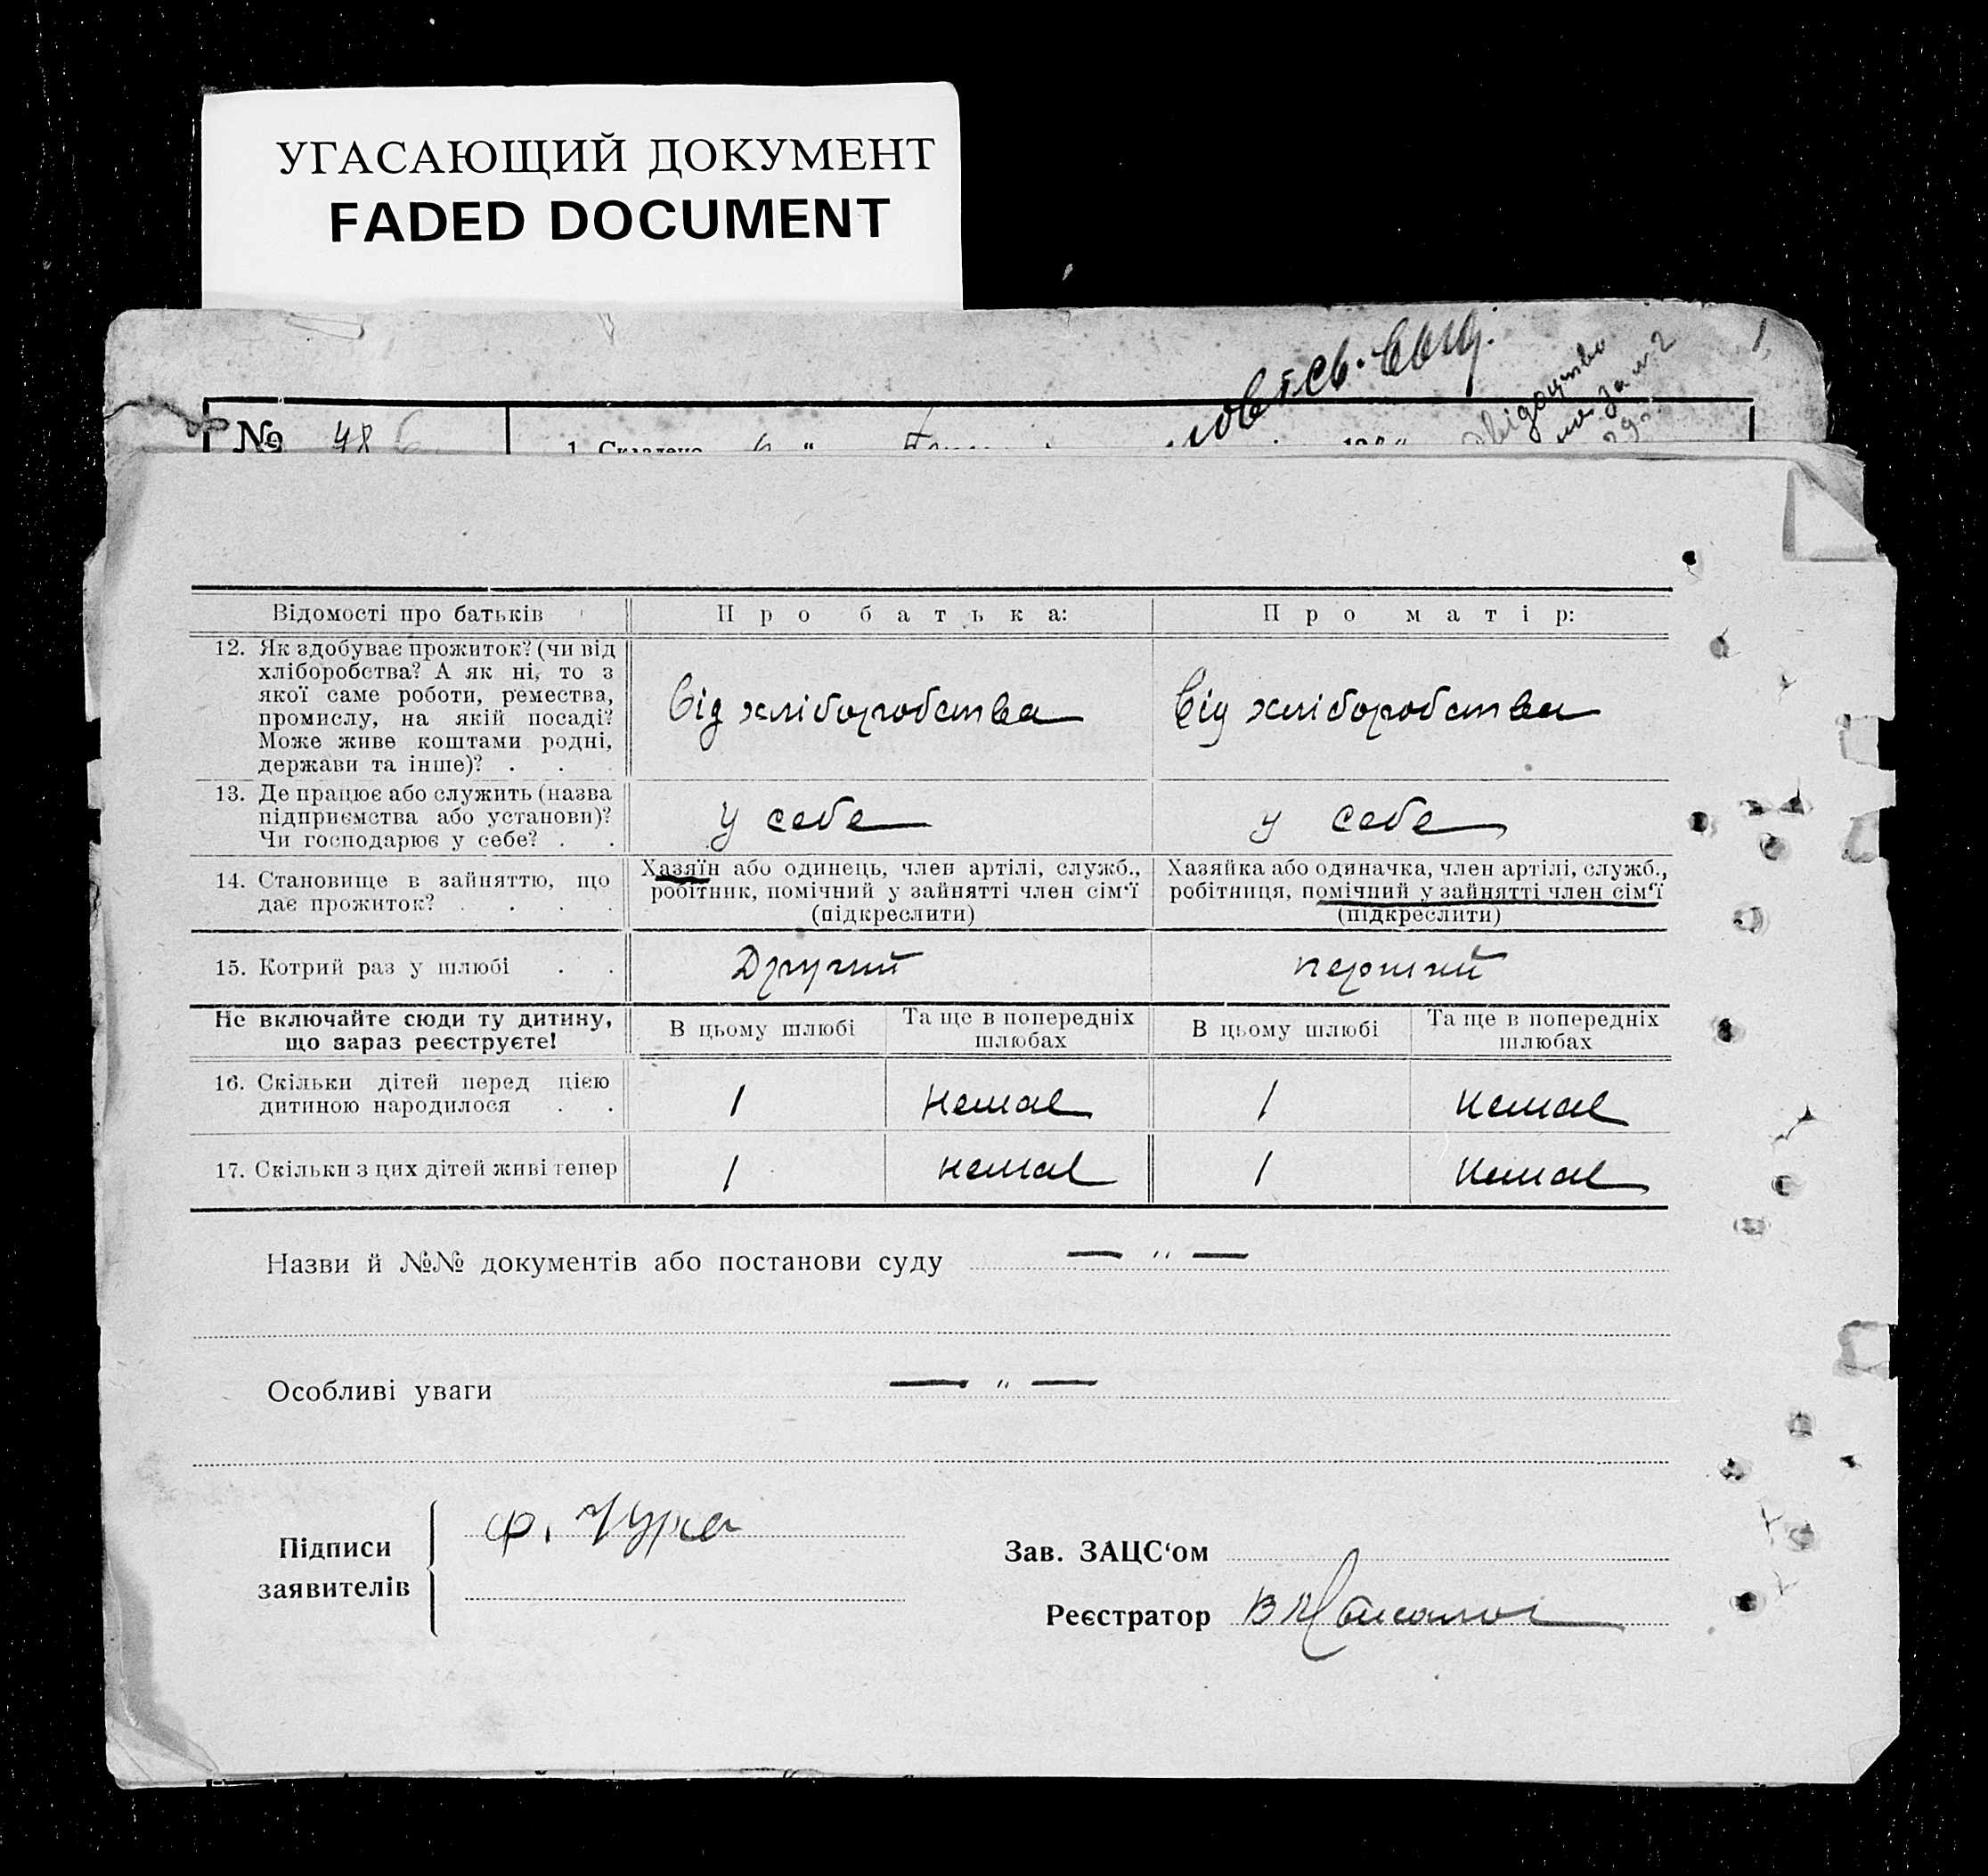 УГАСАЮЩИЙ ДОКУМЕНТ
FADED DOCUMENT
№ 48
1. Складено
свідоцтво
Відомості про батьків
Про батька:
Про матір:
12. Як здобуває прожиток? (чи від
хліборобства? А як ні, то з
якої саме роботи, ремества,
промислу, на якій посаді?
Може живе коштами родні,
держави та інше)? . . .
Від хліборобства
Від хліборобства
13. Де працює або служить (назва
підприємства або установи)?
Чи господарює у себе? . .
у себе
у себе
14. Становище в зайняттю, що
дає прожиток? . . . .
Хазяїн або одинець, член артілі, служб.,
робітник, помічний у зайнятті член сім'ї
(підкреслити)
Хазяйка або одиначка, член артілі, служб.,
робітниця, помічний у зайнятті член сім'ї
(підкреслити)
15. Котрий раз у шлюбі . .
Другий
перший
Не включайте сюди ту дитину,
що зараз реєструєте!
В цьому шлюбі
Та ще в попередніх
шлюбах
В цьому шлюбі
Та ще в попередніх
шлюбах
16. Скільки дітей перед цією
дитиною народилося . .
1
немає
1
немає
17. Скільки з цих дітей живі тепер
1
немає
1
немає
Назви й №№ документів або постанови суду — " —
Особливі уваги — " —
Підписи
заявителів
Ф. Чура
Зав. ЗАЦС'ом
Реєстратор